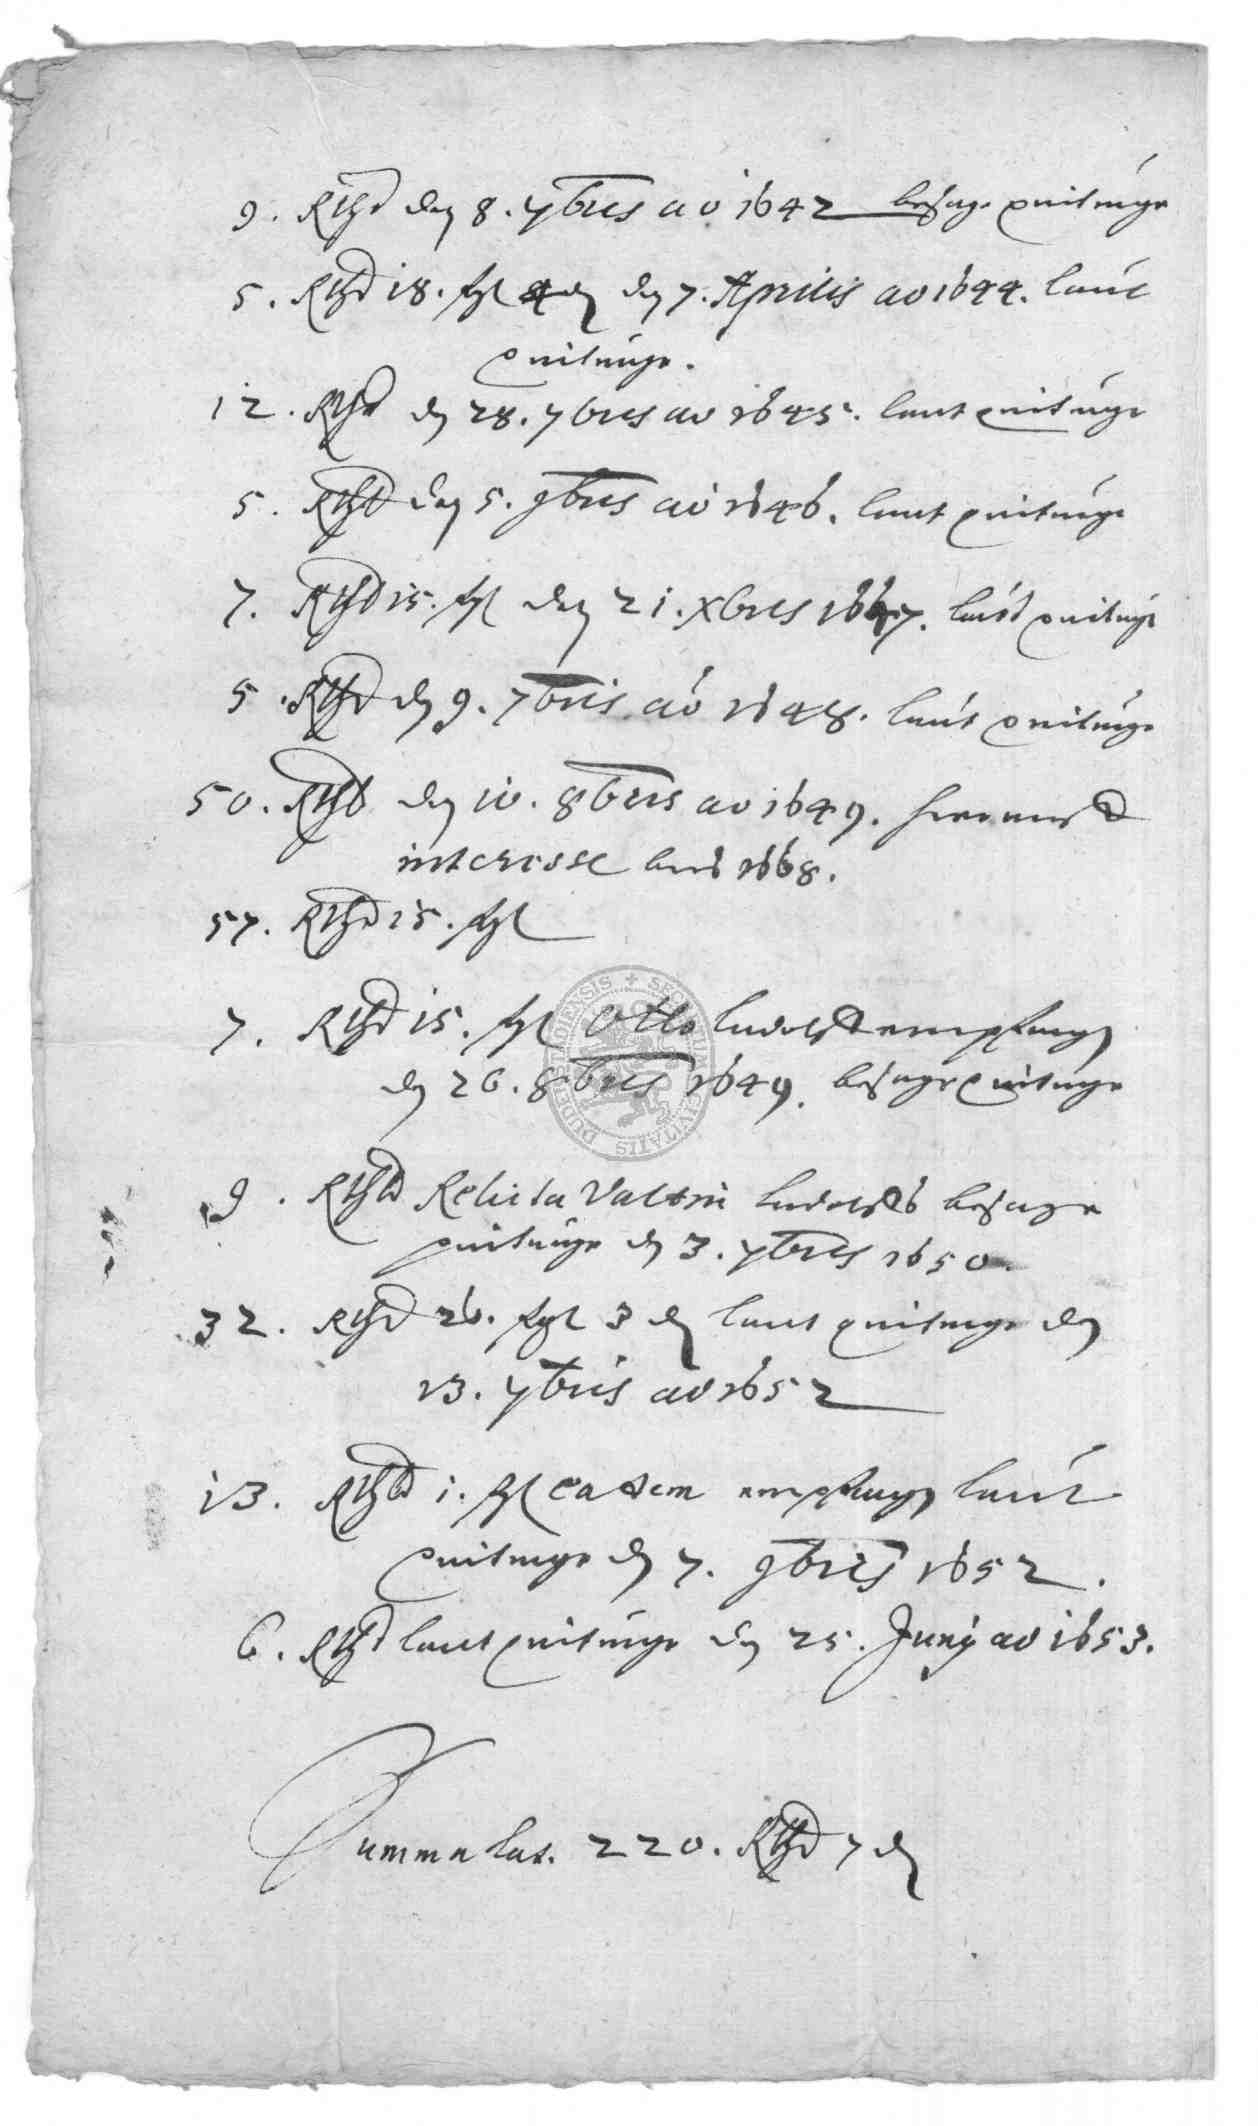 9. Rthlr den 8. 7bris ao 1642 besage quitunge
5. Rthlr 18. sgl 4 d den 7. Aprilis ao 1644. laut
quitunge.
12. Rthlr d 28. 7bris ao 1645. laut quitunge
5. Rthlr den 5. 9bris ao 1646. laut quitunge
7. Rthlr 15. sgl den 21. xbris 1647. laut quitunge
5. Rthlr d 9. 7bris ao 1648. laut quitunge
50. Rthlr den 10. 8bris ao 1649.
interesse 1668.
57. Rthlr 15. sgl
7. Rthlr 15. sgl Otto Ludolff empfangen
den 26. 8bris 1649. besage quitunge
9. Rthlr Relicta Valtin Ludolffs besage
quitunge d 3. 7bris 1650.
32. Rthlr 26. sgl 3 d laut quitunge den
13. 7bris ao 1652
13. Rthlr 1. sgl eadem empfangen laut
quitunge d 7. 9bris 1652.
6. Rthlr laut quitunge den 25. Junÿ ao 1653.
Summa lat. 220. Rthlr 7 d